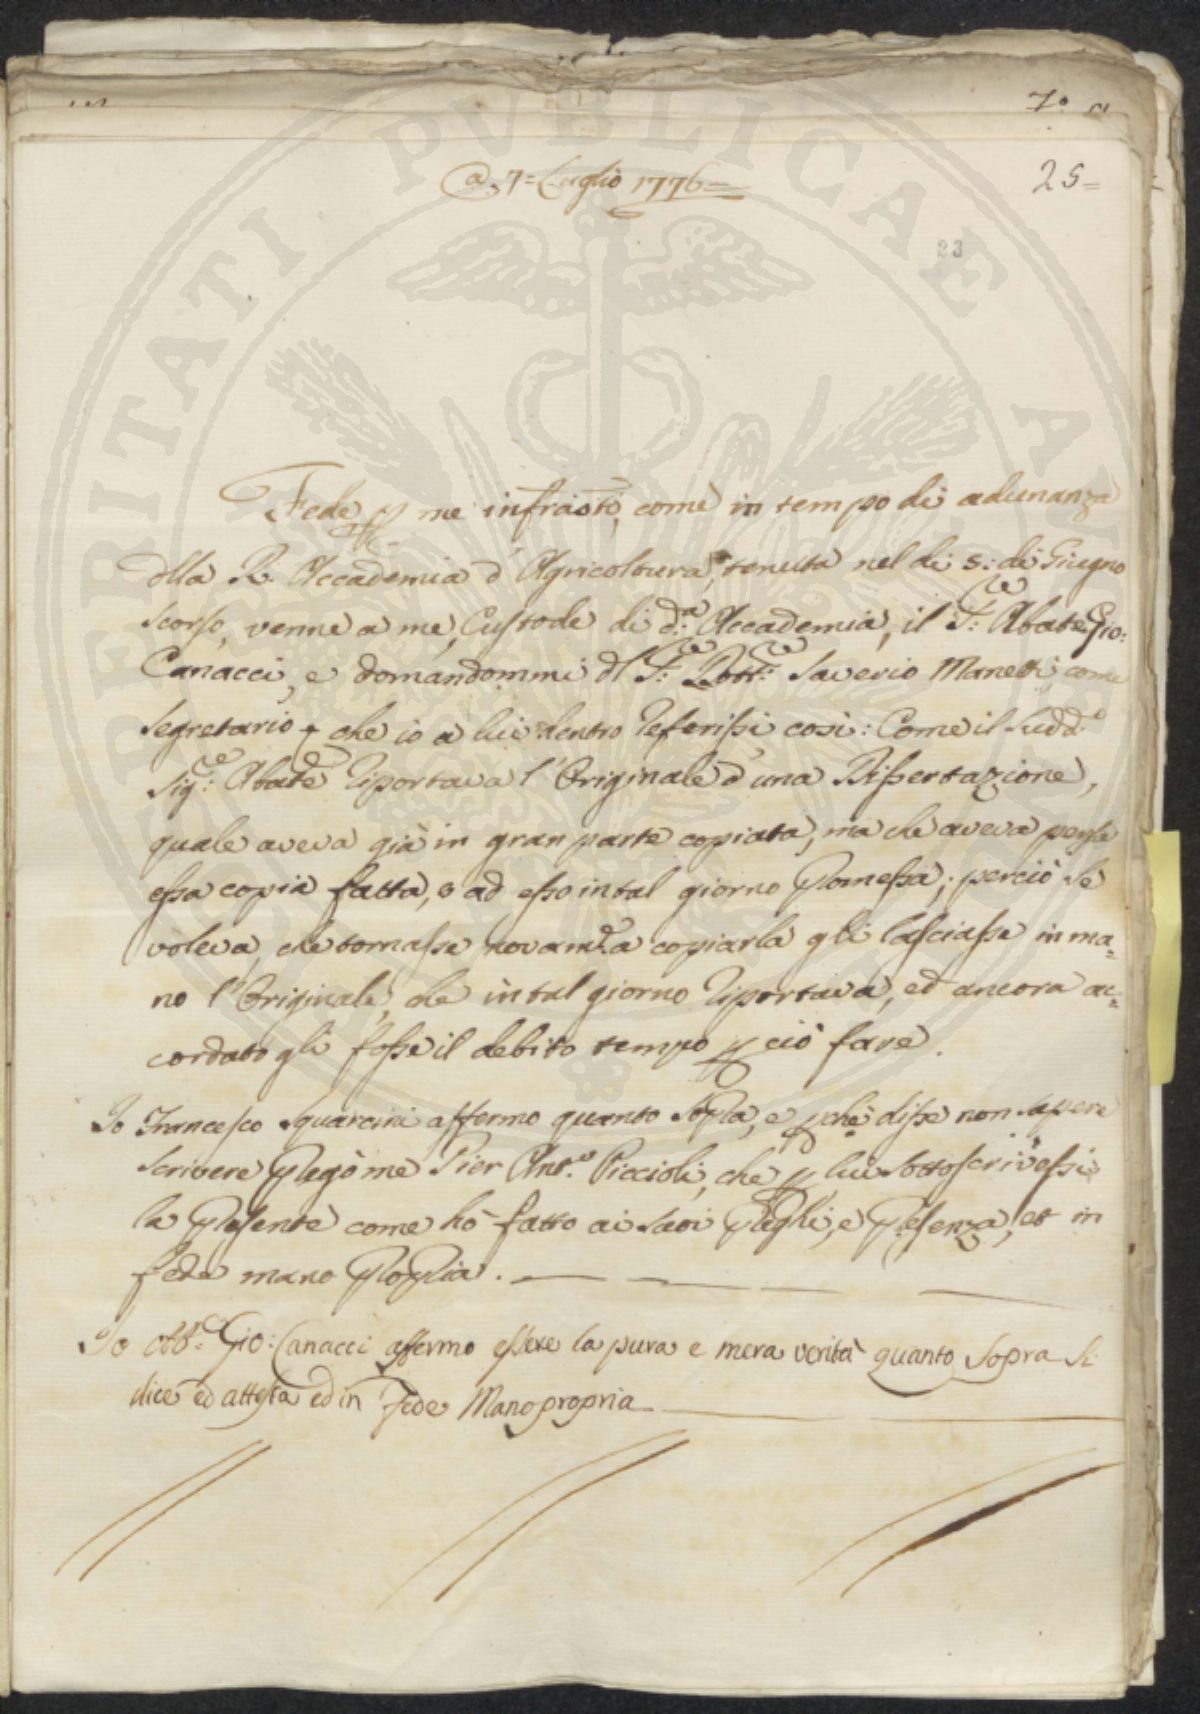 7º
25=
a, 7= Luglio 1776=
23
Fede p me infrastõ, come in tempo di adunanza
dlla R. Accademia d'Agricoltura, tenuta nel di 5: di Giugno
scorso, venne a me, Custode di d:ª Accademia, il S:ᵉ Abate Gio:
Canacci, e domandommi dl S:ᵉ Dott:ᵉ Saverio Manetti, come
Segretario che io a lui dentro referissi cosi: Come il Sudd:º
Sig:ᵉ Abate riportava l'Originale d'una Dissertazione,
quale aveva già in gran parte copiata, ma che aveva persa
essa copia fatta, e ad esso in tal giorno Promessa; perciò se
voleva, che tornasse novamᵉ a copiarla gli lasciasse in ma=
no l'Originale, che in tal giorno riportava, ed ancora ac=
cordato gli fosse il debito tempo p ciò fare.
Io Francesco Squarcini affermo quanto sopra, e pchè disse non sapere
scrivere Pregò me Pier Ant.º Piccioli, che p lui sottoscrivessi
la Presente come hò fatto ai suoi Preghi, e Presenza, et in
fede mano Propria.
Io Ab:ᵉ Gio: Canacci affermo essere la pura e mera verità quanto sopra si
dice ed attesta ed in Fede Mano propria
PROSPERITATI PUBLICAE AUGENDAE